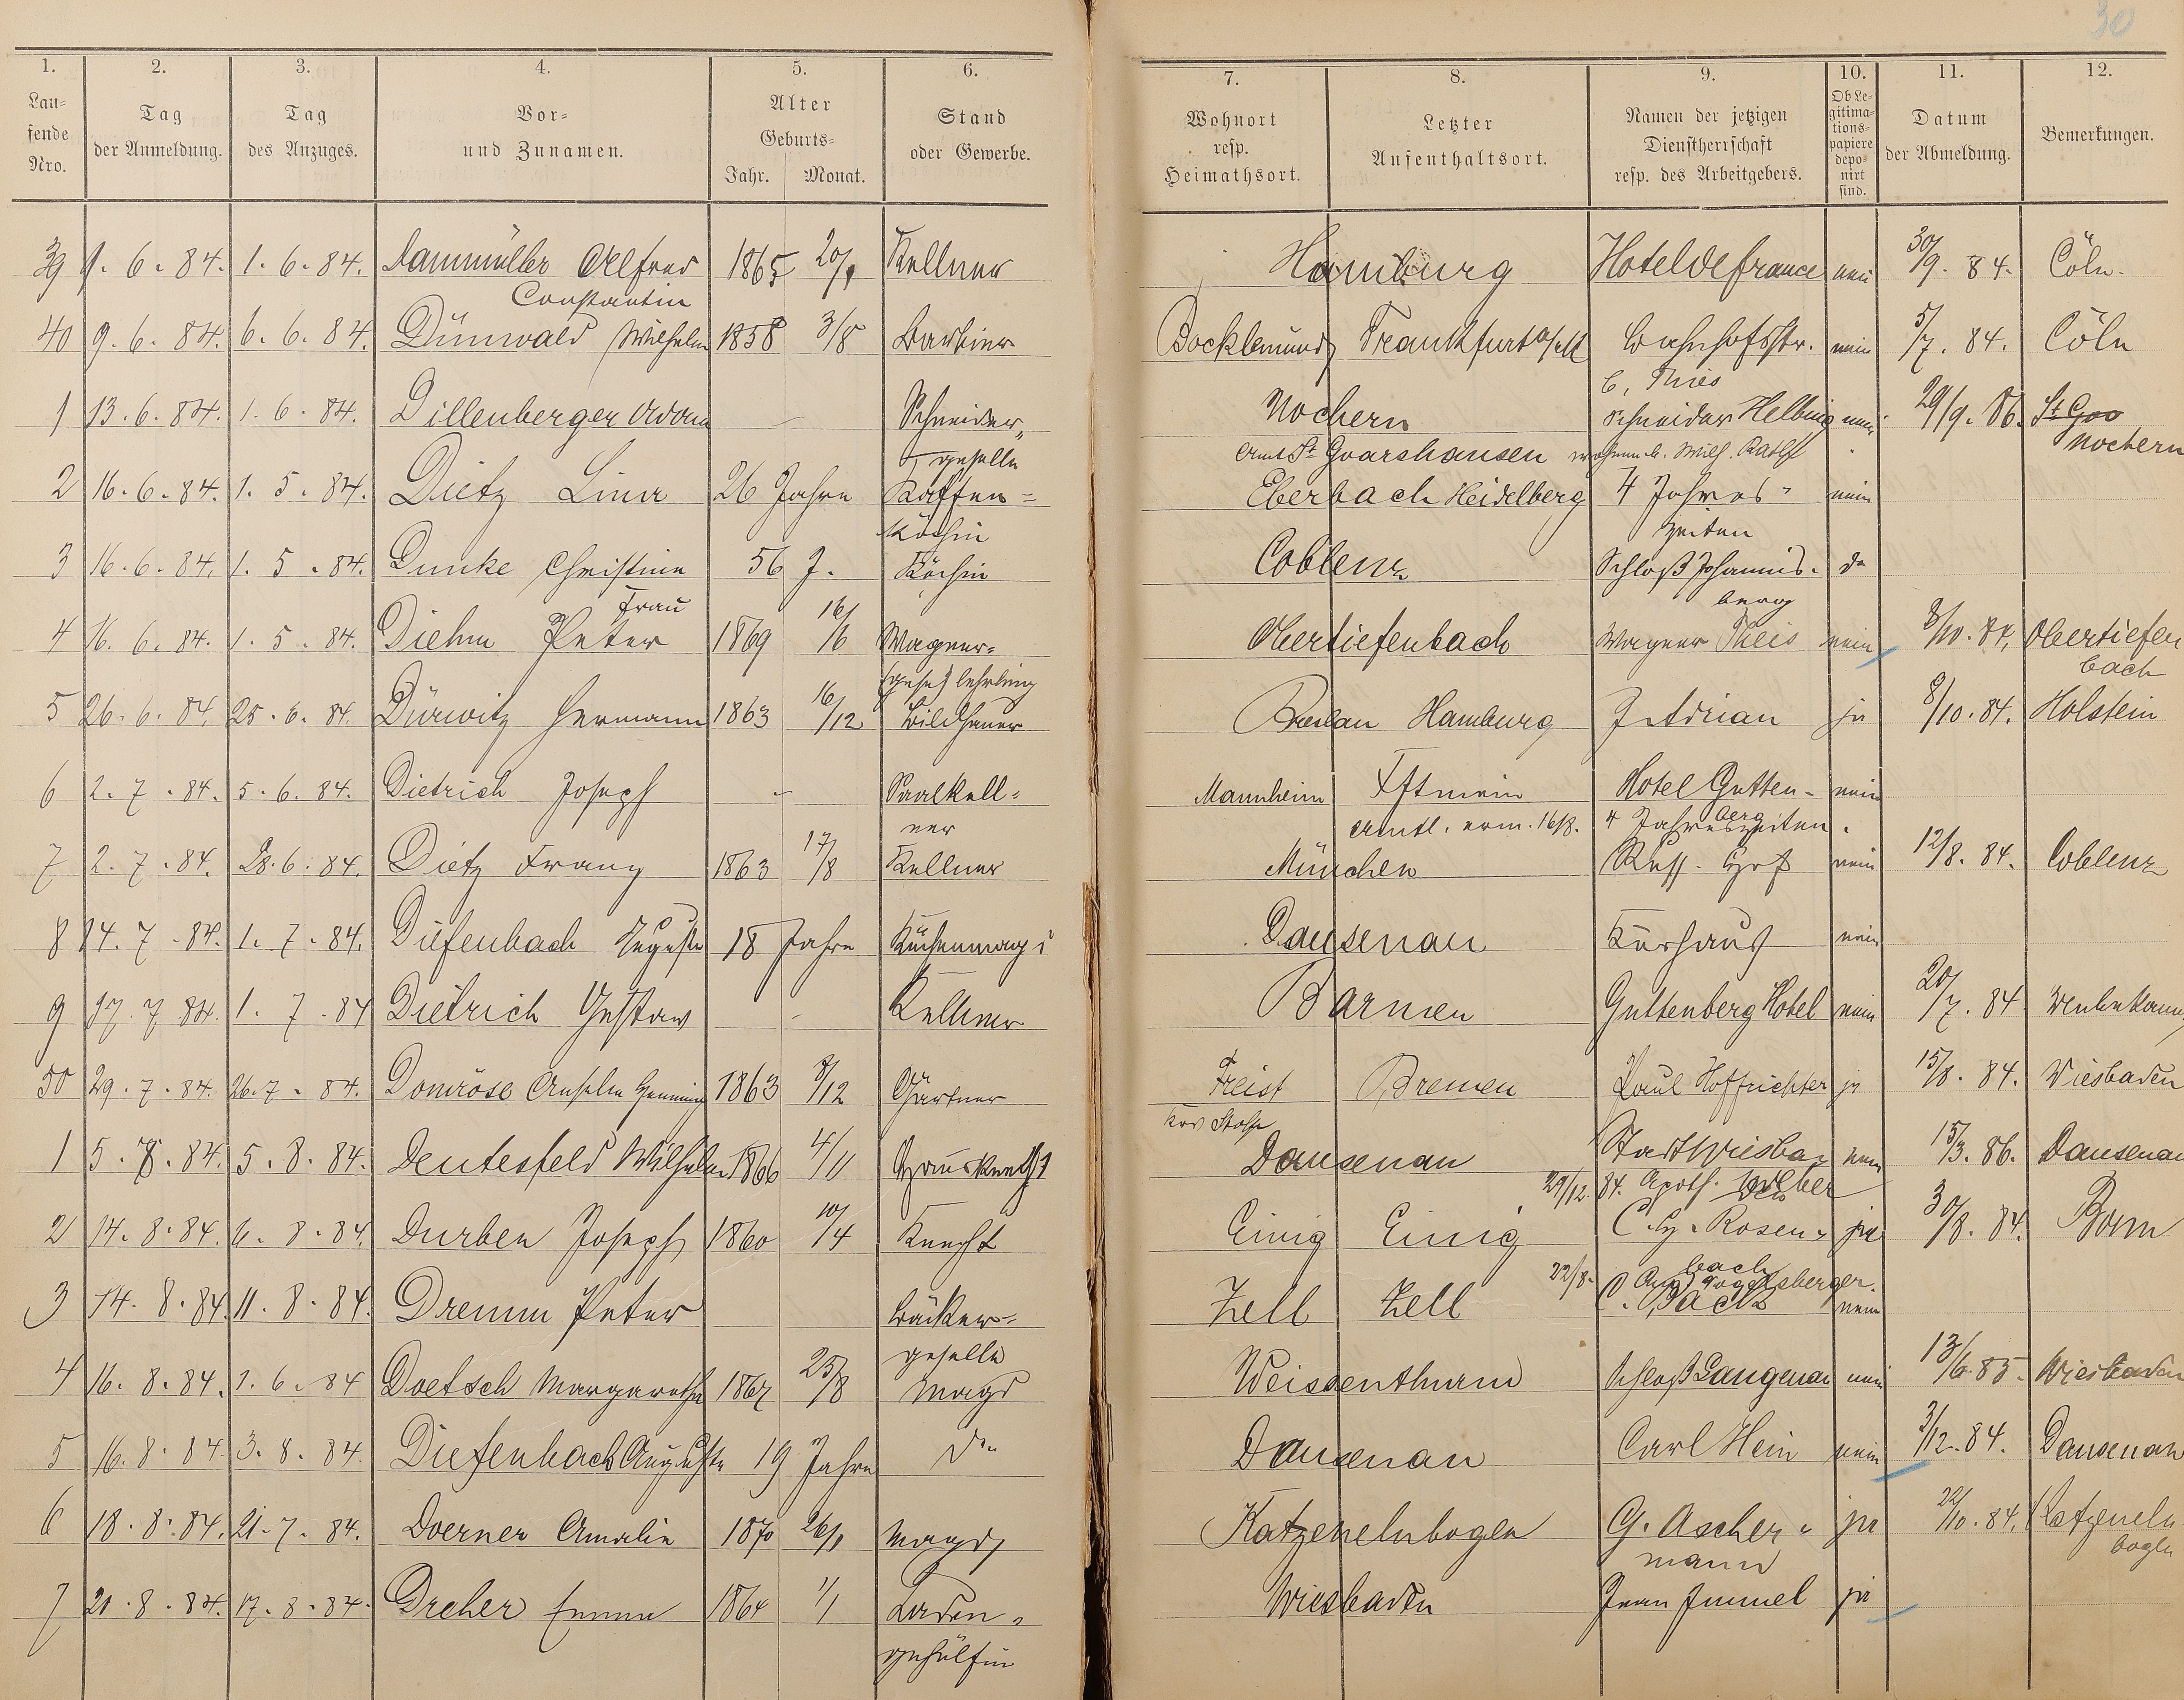 30
1. 2. 3. 4. 5. 6. 7. 8. 9. 10. 11. 12.
Lau-
fende
Nro.
Tag
der Anmeldung.
Tag
des Anzuges.
Vor-
und Zunamen.
Alter
Geburts-
Jahr. Monat.
Stand
oder Gewerbe.
Wohnort
resp.
Heimathsort.
Letzter
Aufenthaltsort.
Namen der jetzigen
Dienstherrschaft
resp. des Arbeitgebers.
Ob Le-
gitima-
tions-
papiere
depo-
nirt
sind.
Datum
der Abmeldung.
Bemerkungen.
39 9. 6. 84. 1. 6. 84. Dammüller Alfred 1865 Kellner Hamburg Hotel de france nein 30/9. 84. Cöln.
Constantin
40 9. 6. 84. 6. 6. 84. Dünwald Wilhelm 1858 3/8 Barbier Bocklemünd Frankfurt a/M Bahnhofstr. nein 5/7. 84. Cöln
b. Thies
1 13. 6. 84. 1. 6. 84. Dillenberger Adam – Schneider- Nochern Schneider Helbing nein 29/9. 86. St Goo
geselle Amt St Goarshausen Wilh. Nochern
2 16. 6. 84. 1. 5. 84. Dietz Lina 26 Jahre Kaffee- Eberbach Heidelberg 4 Jahres- nein
köchin zeiten
3 16. 6. 84. 1. 5. 84. Dunke Christine 56 J. Köchin Coblenz Schloß Johannis- do
Frau berg
4 16. 6. 84. 1. 5. 84. Diehm Peter 1869 16/6 Wagner- Obertiefenbach Wagner Theis nein 8/10. 84. Obertiefen
lehrling bach
5 26. 6. 84. 25. 6. 84. Dürwitz Hermann 1863 16/12 Bildhauer Breslau Hamburg J. Adrian ja 8/10. 84. Holstein
6 2. 7. 84. 5. 6. 84. Dietrich Joseph – Saalkell- Mannheim Hotel Gutten- nein
ner 16/8. 4 Jahreszeiten. berg
7 2. 7. 84. 28. 6. 84. Dietz Franz 1863 17/8 Kellner München Russ. Hof nein 12/8. 84. Coblenz
8 14. 7. 84. 1. 7. 84. Diefenbach Auguste 18 Jahre Küchenmagd Dausenau Kurhaus nein
9 17. 7. 84. 1. 7. 84 Dietrich Gustav – Kellner Barmen Guttenberg Hotel nein 20/7. 84 unbekannt
50 29. 7. 84. 26. 7. 84. Domröse Anselm Henning 1863 8/12 Gärtner Freist Bremen Paul Hoffrichter ja 15/8. 84. Wiesbaden
Krs Stolp
1 5. 8. 84. 5. 8. 84. Deutesfeld Wilhelm 1866 4/11 Hausknecht Dausenau Stadt Wiesba- nein 15/3. 86. Dausenau
29/12. 84. Apoth. Weber den
2 14. 8. 84. 6. 8. 84. Durben Joseph 1860 10/4 Knecht Einig Einig C. Hy. Rosen- ja 30/8. 84. Bonn
bach
22/8. Aug. Vogelsberger
3 14. 8. 84. 11. 8. 84. Dremm Peter Bäcker- Zell Zell nein
geselle
4 16. 8. 84. 1. 6. 84 Doetsch Margarethe 1867 25/8 Magd Weissenthurm Schloß Langenau nein 13/6. 85. Wiesbaden
5 16. 8. 84. 3. 8. 84. Diefenbach Auguste 19 Jahre do Dausenau Carl Hein nein 3/12. 84. Dausenau
6 18. 8. 84. 21. 7. 84. Doerner Amalie 1870 Magd Katzenelnbogen G. Ascher- ja 22/10. 84. Katzeneln
mann bogen
7 21. 8. 84. 17. 8. 84. Dreher Emma 1864 1/1 Laden- Wiesbaden Jean Immel ja
gehülfin